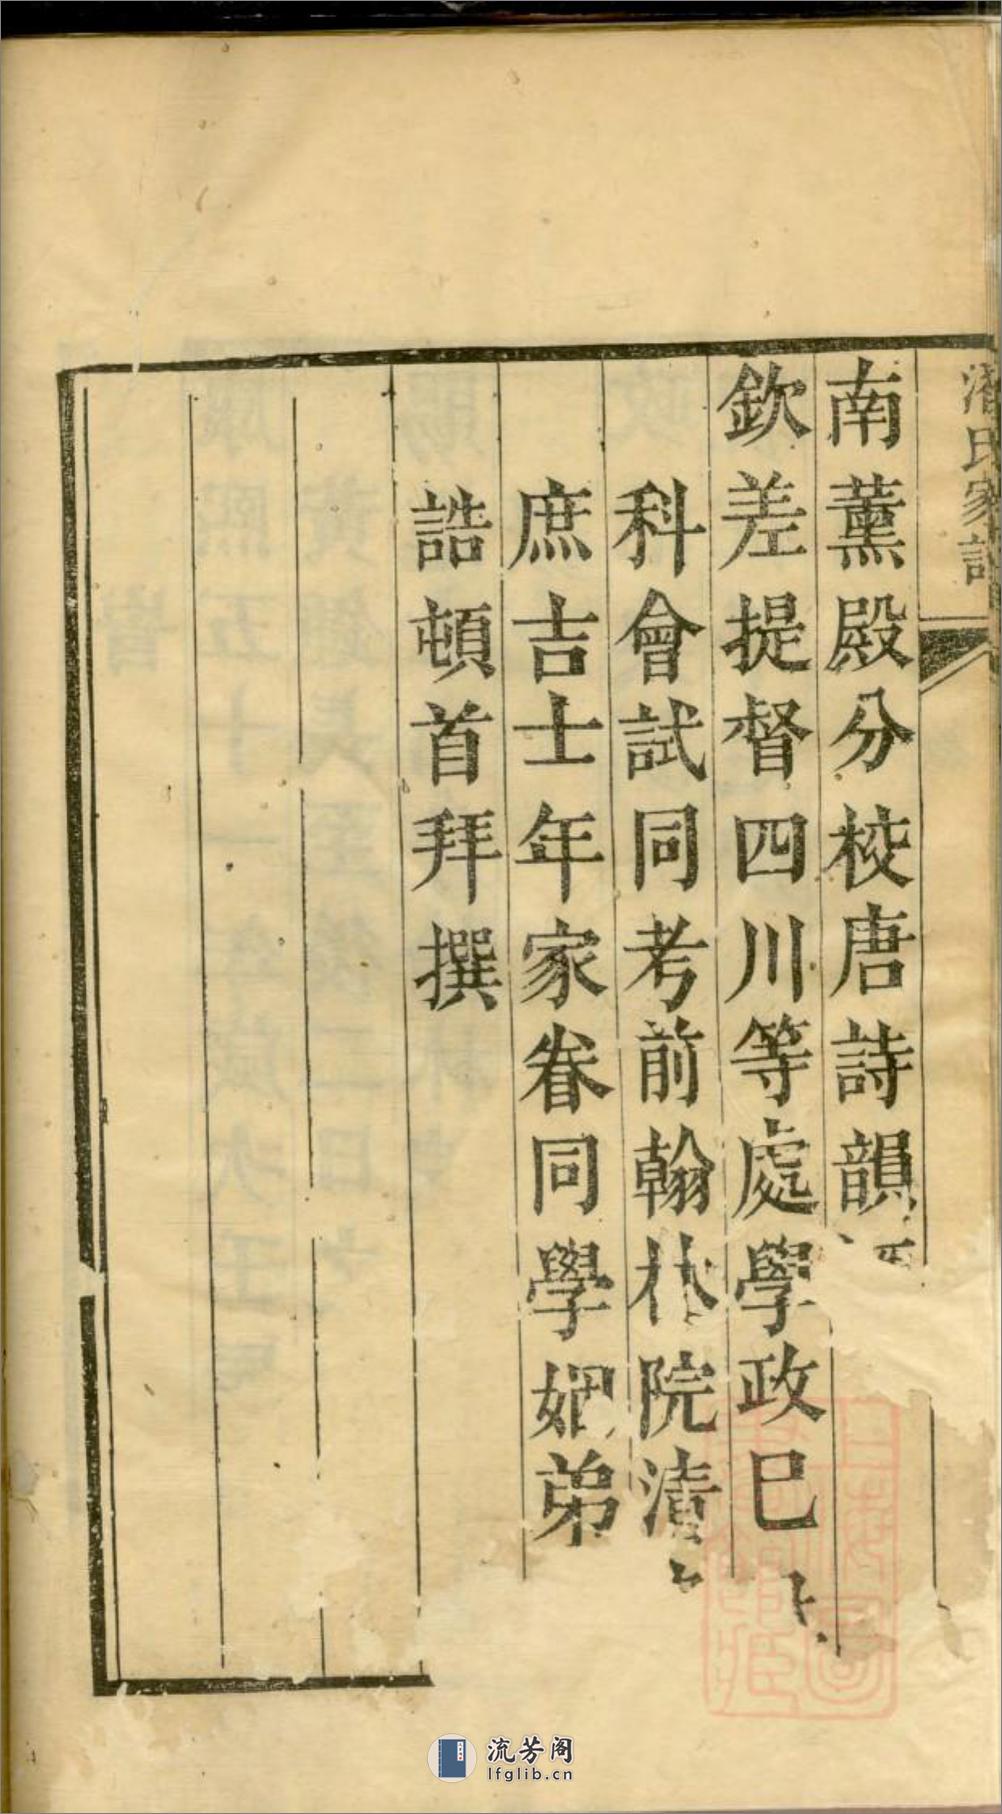 潘氏家譜
南薰殿分校唐詩韻
欽差提督四川等處學政己
科會試同考前翰林院清
庶吉士年家眷同學姻弟
誥頓首拜撰
流芳阁
lfglib.cn